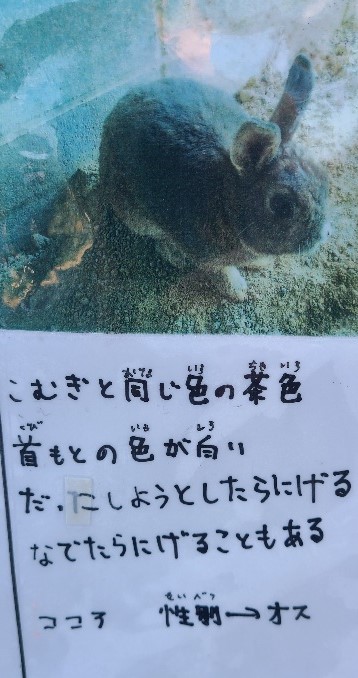 こむぎと同じ色の茶色
首もとの色が白い
だ、こしようとしたらにげる
なでたらにげることもある
ココア　性別→オス